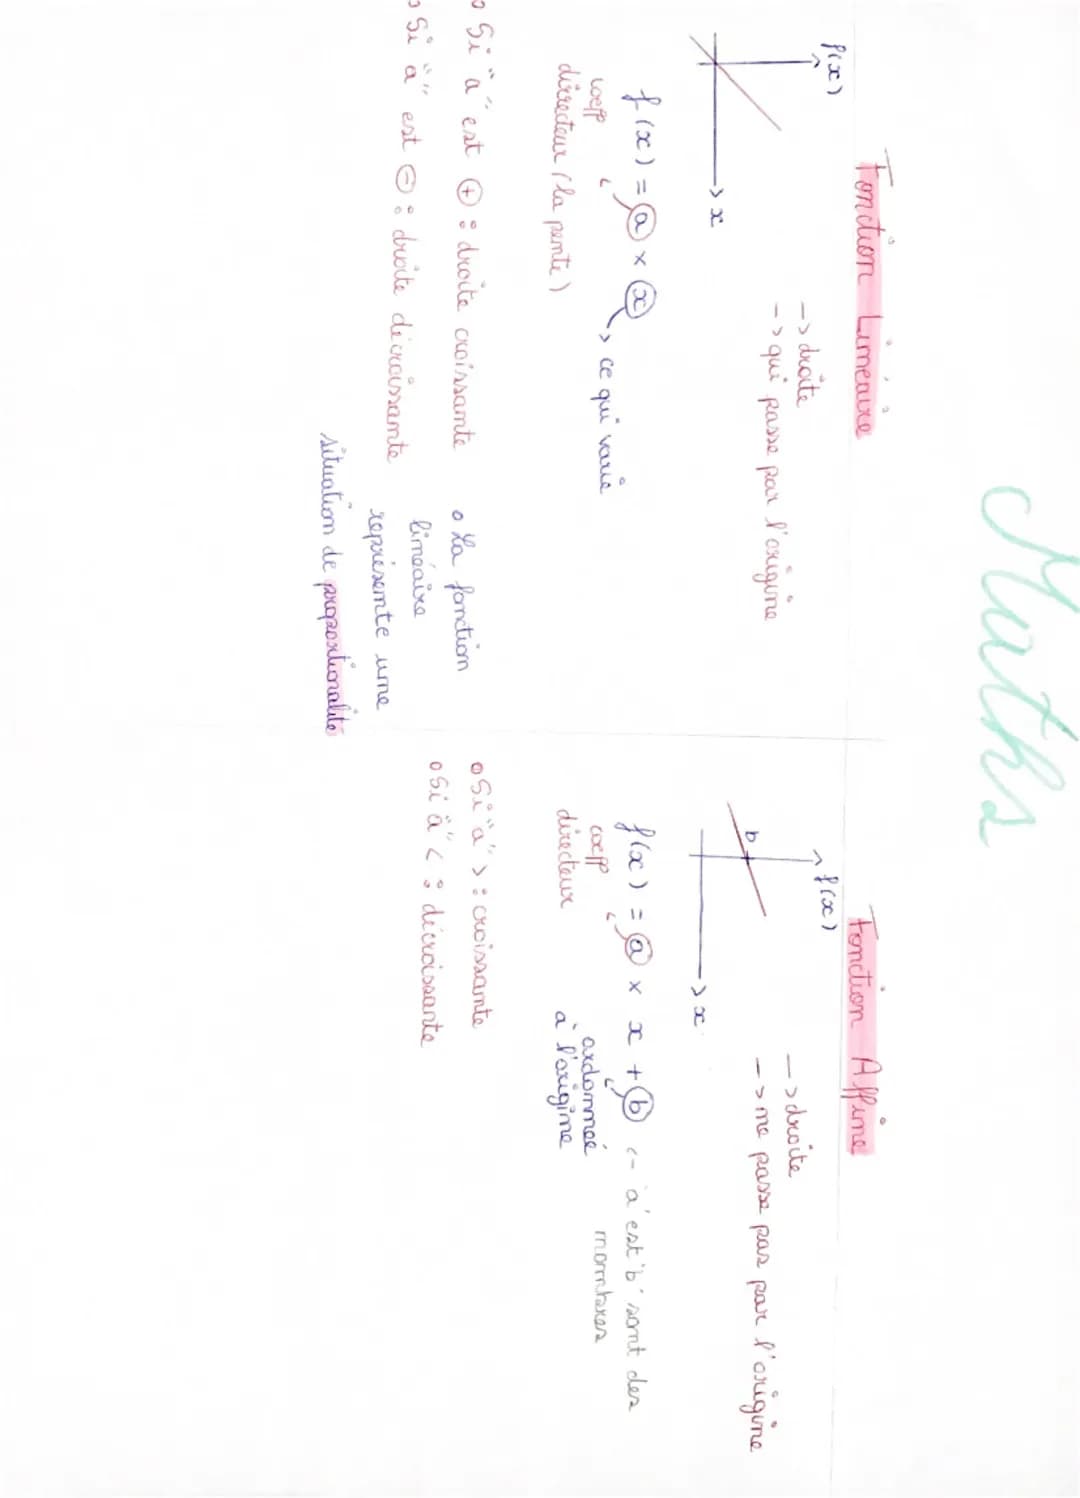 Maths
Fonction Linéaire
f(x)
-> droite
-> qui passe par l'origine
x
f(x) = a × x
-> ce qui varie
coeff
dirrecteur (la pente)
o Si "a" est + : droite croissante
o Si "a" est - : droite décroissante
o La fonction
linéaire
représente une
situation de proportionalité
Fonction Affine
f(x)
-> droite
-> ne passe pas par l'origine
b
x
f(x) = a × x + b <- 'a' est 'b' sont des
nombres
coeff
directeur
ordonnée
à l'origine
o Si "a" > : croissante
o Si "a" < : décroissante